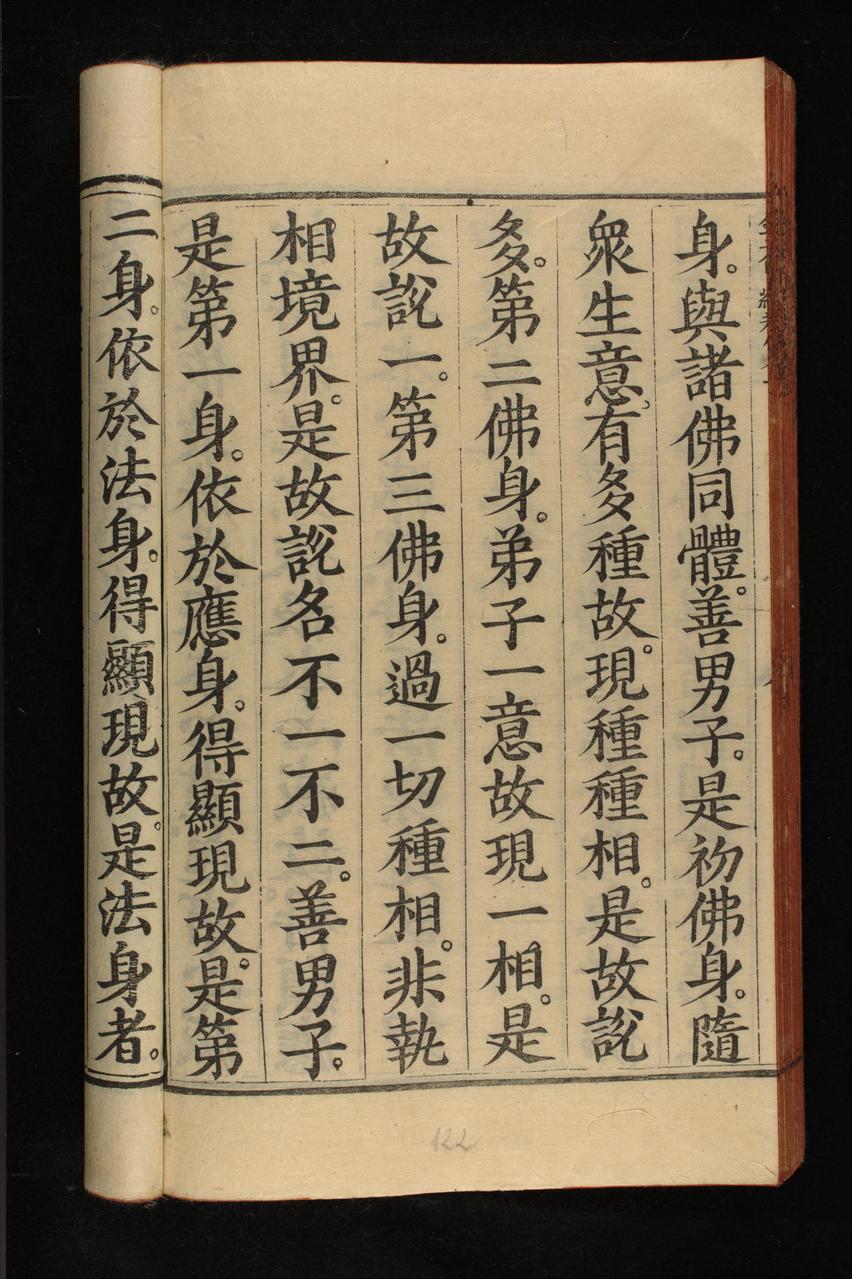 身。與諸佛同體。善男子。是初佛身。隨
眾生意。有多種故。現種種相。是故說
多。第二佛身。弟子一意故現一相。是
故說一。第三佛身。過一切種相。非執
相境界。是故說名不一不二。善男子。
是第一身。依於應身。得顯現故。是第
二身。依於法身。得顯現故。是法身者。
122